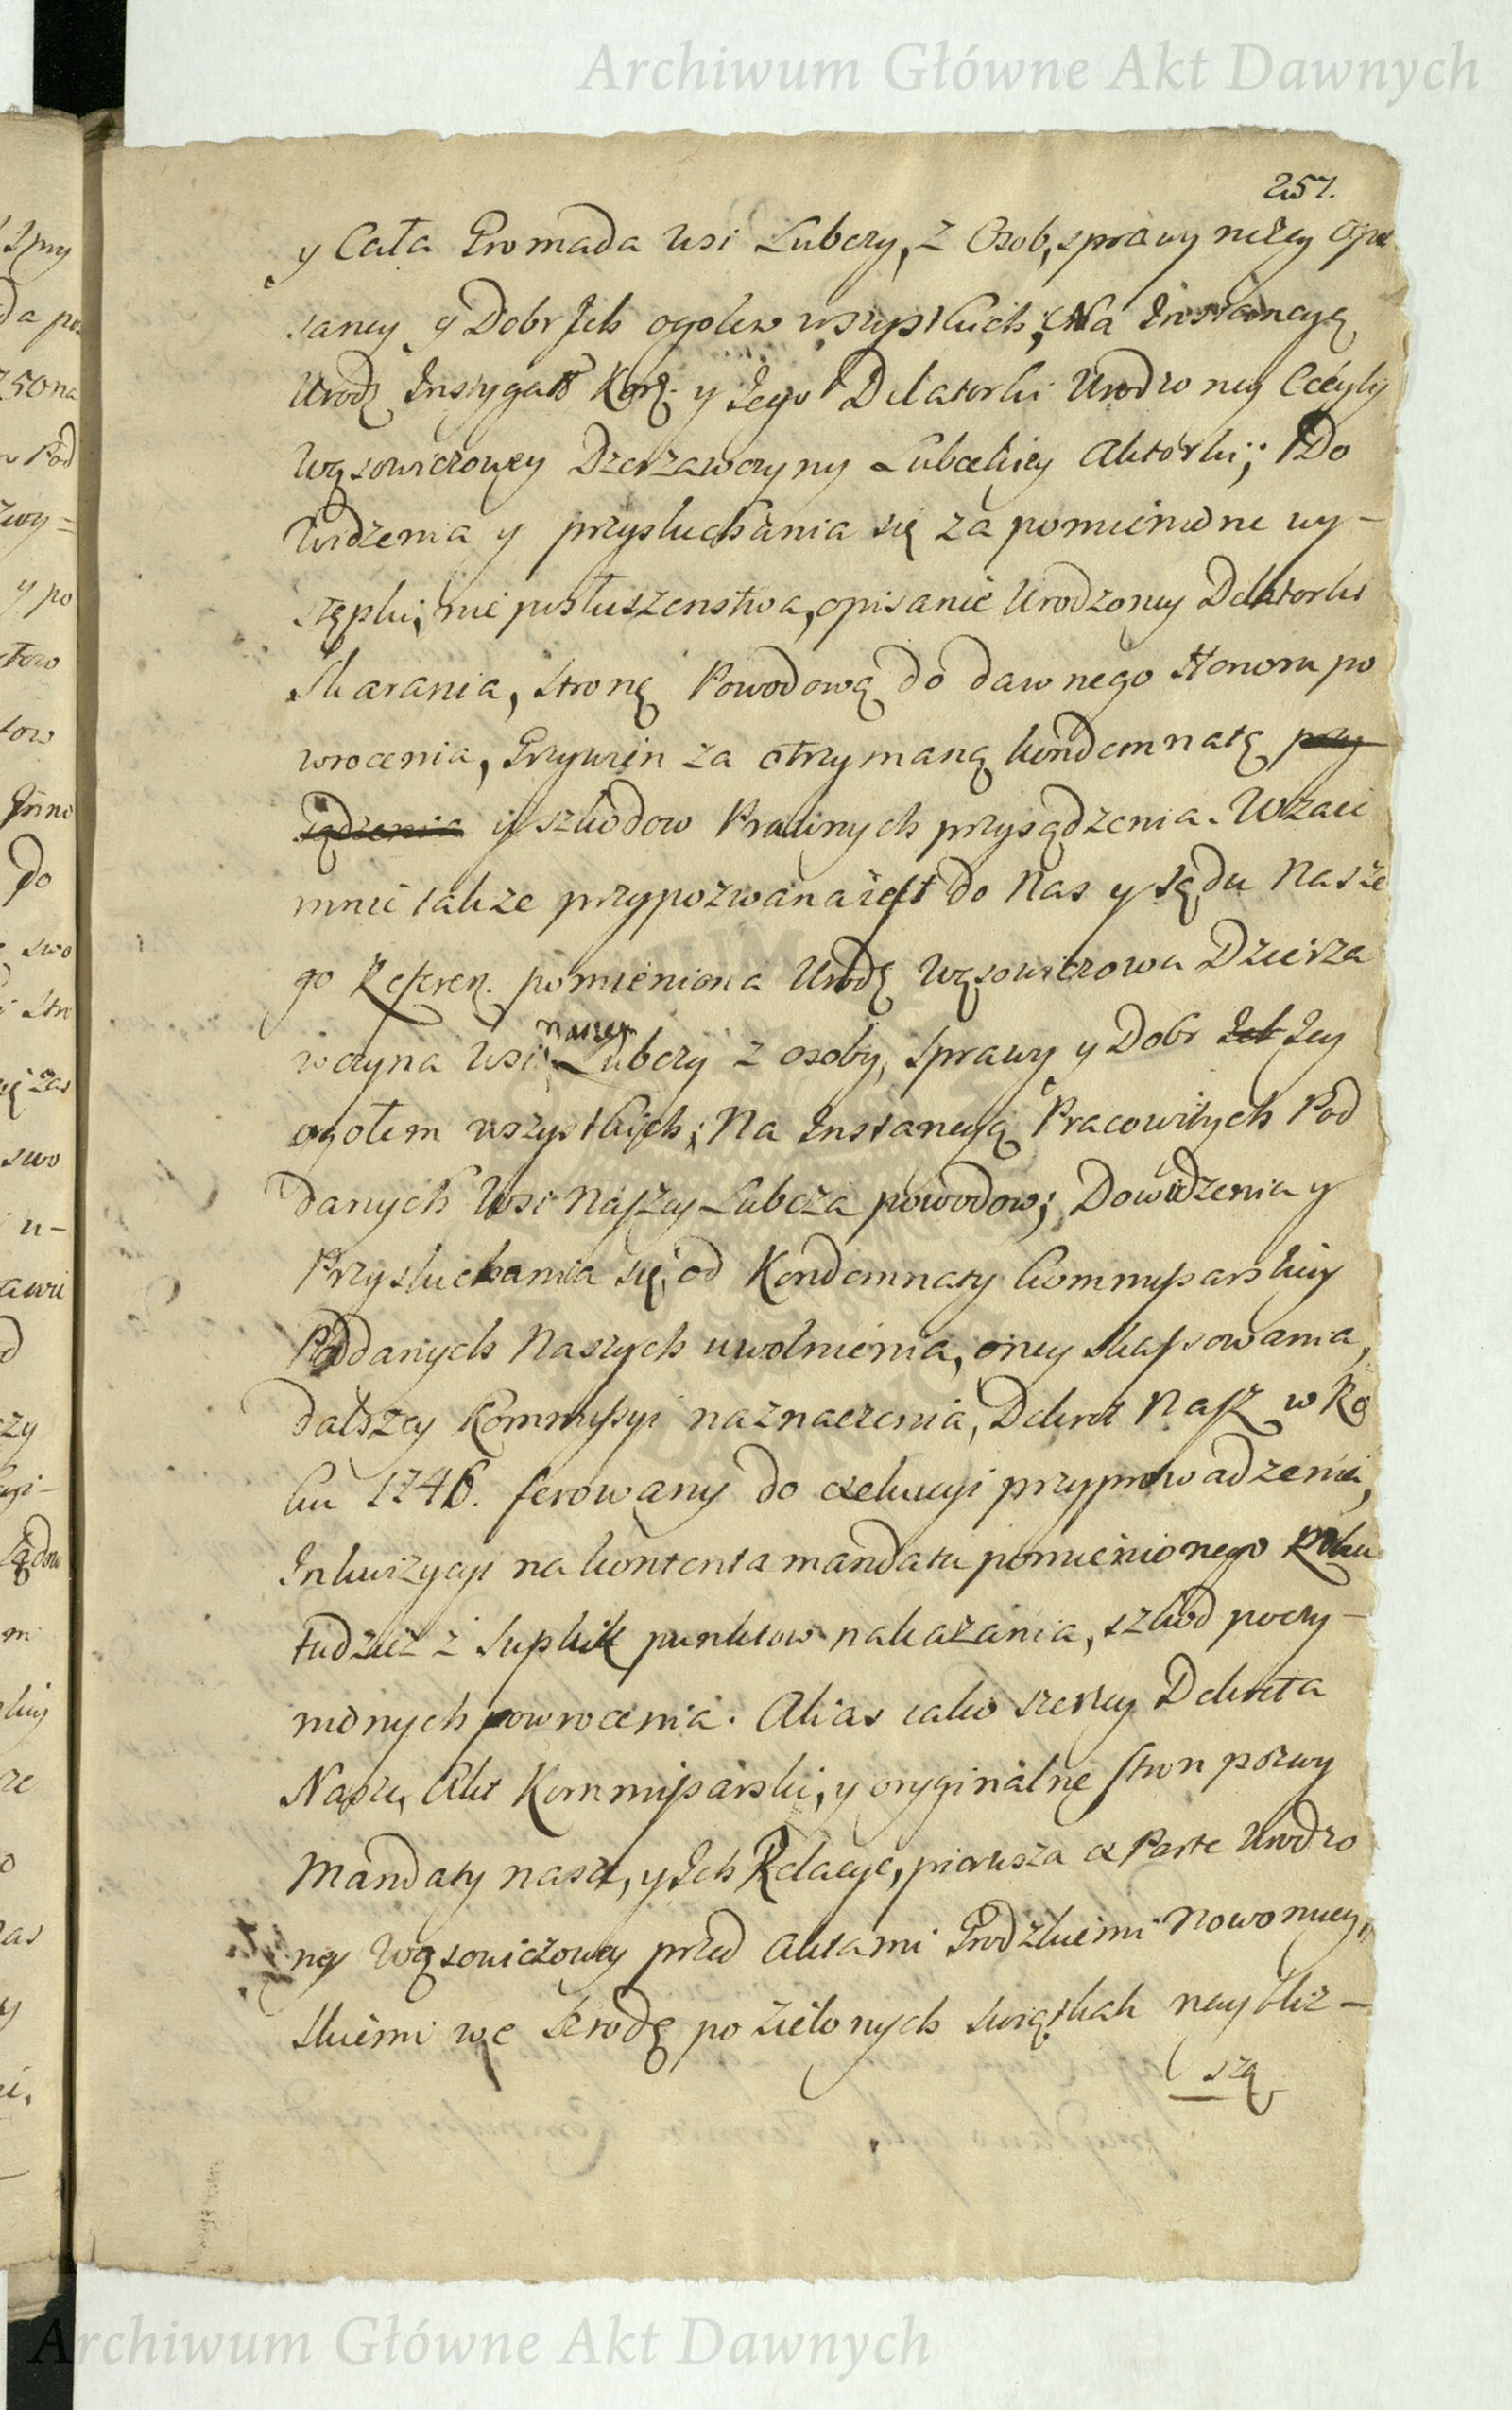 Archiwum Główne Akt Dawnych
257.
y Cała Gromada wsi Lubczy, z Osob, sprawy niżey opi
saney y Dobr Jch ogolem wszystkich; Na Jnstancyą
Urodz Jnstygata Kor: y Jego Delatorki Urodzoney Cecyly
Wąsowiczowey Dzerzawczyny Lubeckiey Aktorki; Do
Widzenia y przysłuchania się za pomienione wy-
stępki, nie posłuszenstwa, opisanie Urodzoney Delatorki
Skarania, stronę Powodową do dawnego Honoru po
wrocenia, Grzywien za otrzymaną kondemnatę przy
sądzenia y szkodow Prawnych przysądzenia. Wzaie
mnie takze przypozwana iest do Nas y sądu Nasze
go Referen. pomieniona Urodz Wąsowiczowa Dzierza
wczyna wsi naszey Lubczy z osoby, sprawy y Dobr Ich Jey
ogołem wszystkich; Na Jnstancyą Pracowitych Pod
danych Wsi Naszey Lubcza powodow; Dowidzenia y
Przysluchania się, od Kondemnaty kommissarskiey
Poddanych Naszych uwolnienia, oney skassowania,
dalszey kommissyi naznaczenia, Dekret Nasz w Ro
ku 1746. ferowany do exekucyi przyprowadzenia,
Jnkwizycyi na kontenta mandatu pomienionego Roku
tudziez z suplik punktow nakazania, szkod poczy-
nionych powrocenia. Alias iako szerzey Dekreta
Nasze, Akt Kommissarski, y oryginalne stron pozwy
Mandaty nasze, y Jch Relacye, pierwsza ex Parte Urodzo
ney Wąsowiczowey przed Aktami Grodzkiemi Nowomiey,
skiemi we Srodę po Zielonych swiątkach naybliz-
szą
Archiwum Główne Akt Dawnych